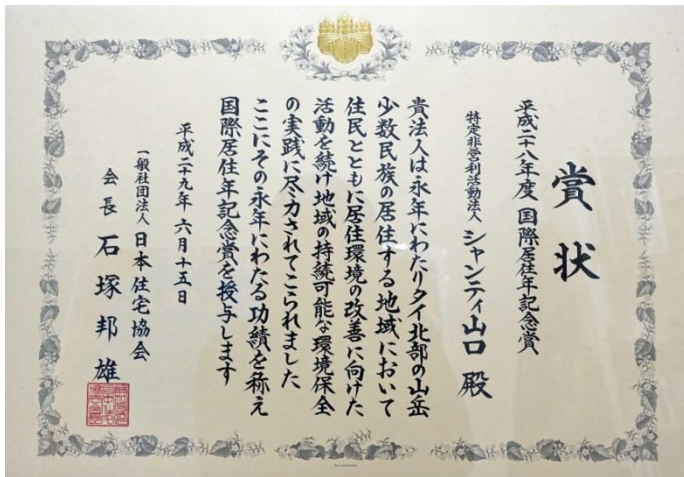 賞状
平成二十八年度 国際居住年記念賞
特定非営利活動法人 シャンティ山口 殿
貴法人は永年にわたりタイ北部の山岳
少数民族の居住する地域において
住民とともに居住環境の改善に向けた
活動を続け地域の持続可能な環境保全
の実践に尽力されてこられました
ここにその永年にわたる功績を称え
国際居住年記念賞を授与します
平成二十九年 六月十五日
一般社団法人 日本住宅協会
会長 石塚邦雄